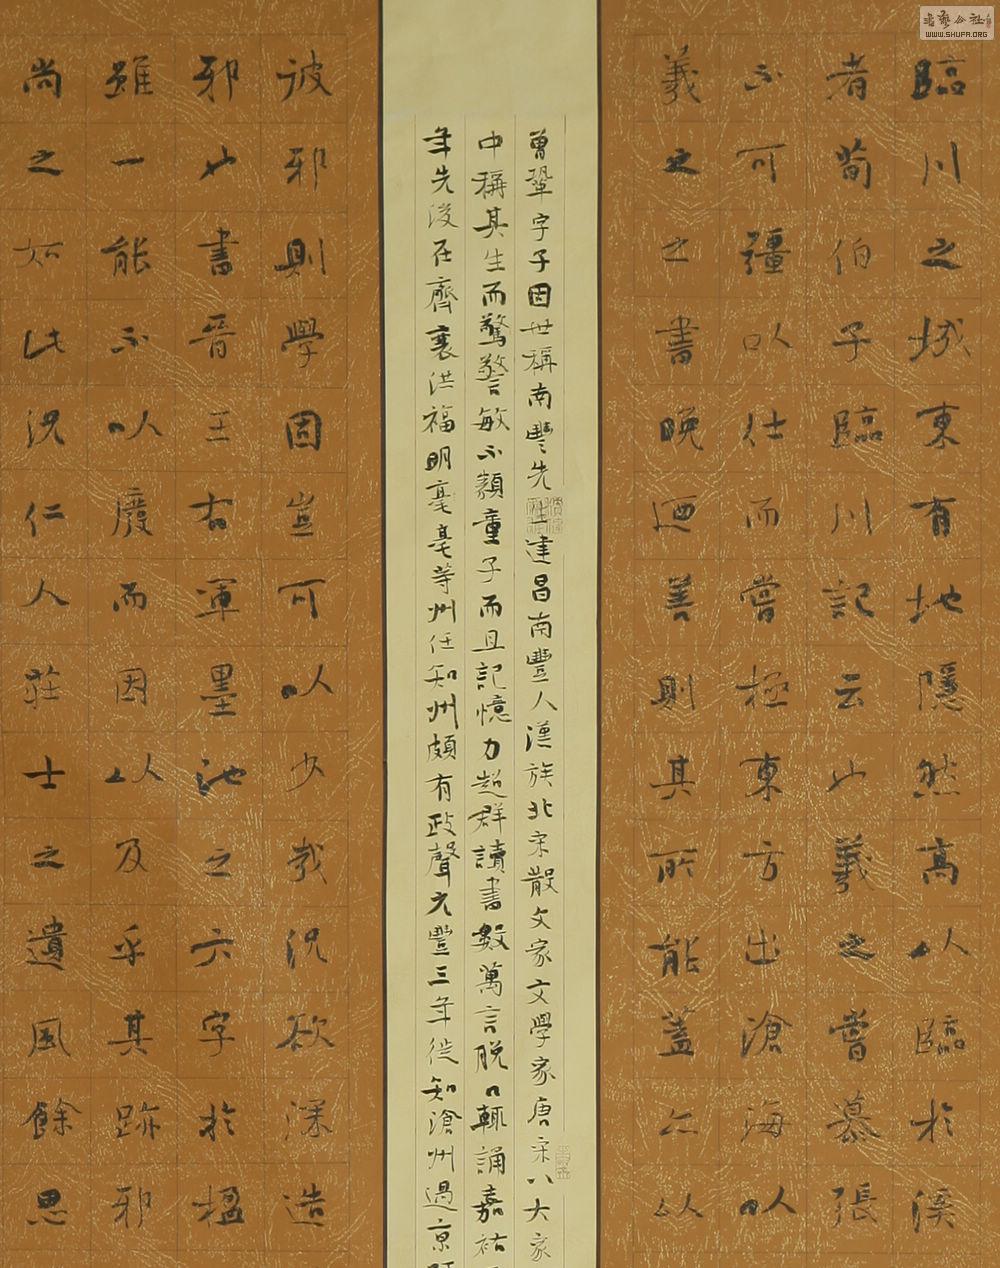 臨川之城東有地隱然高以臨於溪
者荀伯子臨川記云也羲之嘗慕張
不可彊以仕而嘗極東方出滄海以
羲之之書晚廼善則其所能蓋亦以
曾鞏字子固世稱南豐先生建昌南豐人漢族北宋散文家文學家唐宋八大家
中稱其生而驚警敏不類童子而且記憶力超群讀書數萬言脫口輒誦嘉祐
年先後在齊襄洪福明亳亳等州任知州頗有政聲元豐三年徙知滄州過京
彼邪則學固豈可以少哉況欲深造
邪也書晉王右軍墨池之六字於楹
雖一能不以廢而因以及乎其跡邪
尚之如此況仁人莊士之遺風餘思
書藝公社
WWW.SHUFA.ORG